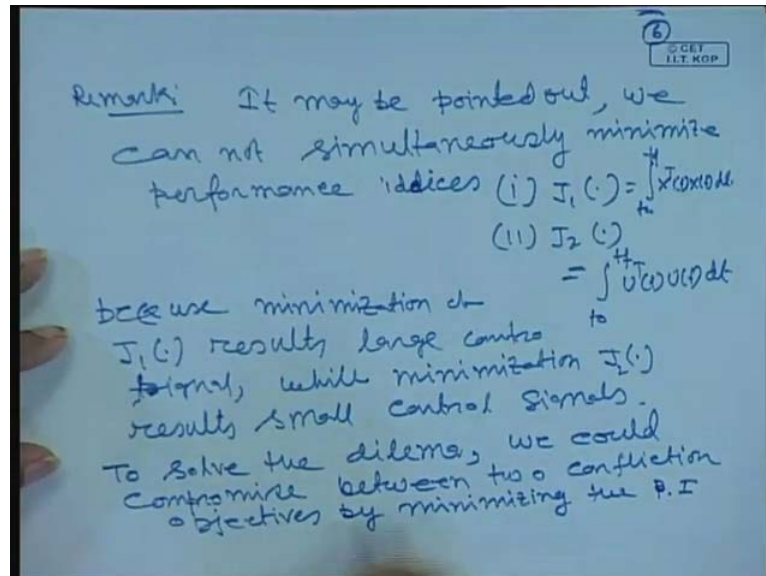 6
© CET
I.I.T. KGP
Remark: It may be pointed out, we
can not simultaneously minimize
performance iddices (i) J₁(·) = ∫ xᵀ(t)x(t)dt
(II) J₂(·)
= ∫ uᵀ(t)u(t)dt
t₀
because minimization
J₁(·) results large contro
signal, while minimization J₂(·)
results small control signals.
To solve the dilema, we could
compromise between two confliction
objectives by minimizing the P.I